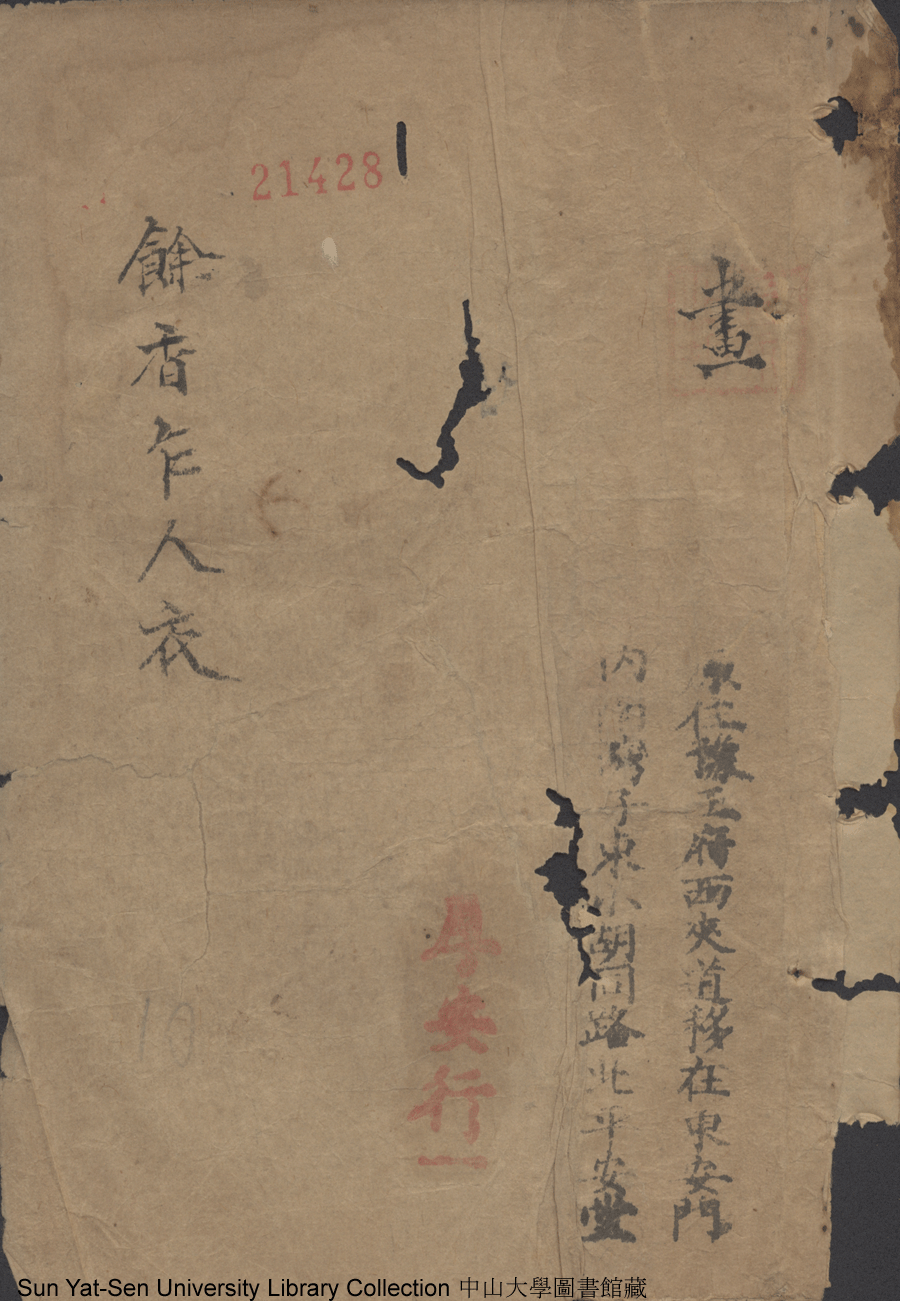 21428
畫
原住誠王府西夾道移在東安門
內灣子東小胡同路北平安堂
平安行一
餘香乍人衣
10
Sun Yat-Sen University Library Collection 中山大學圖書館藏